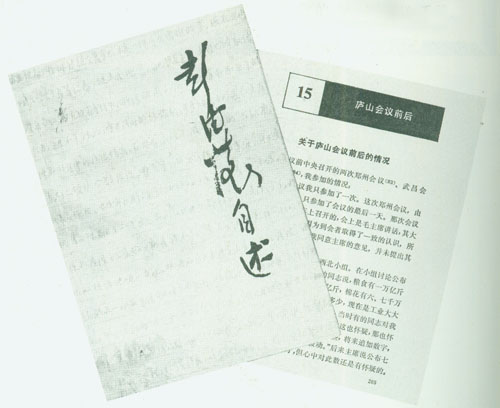 彭德怀自述
15
庐山会议前后
关于庐山会议前后的情况
议前中央召开的两次郑州会议〔82〕、武昌会
我参加的情况。
议我只参加了一次。这次郑州会议，由
只参加了会议的最后一天。那次会议
上召开的，会上是毛主席讲话，其大
因为到会者取得了一致的认识，所
我同意主席的意见，并未提出其
西北小组。在小组讨论公布
的同志说，粮食有一万亿斤
亿斤，棉花有六、七千万
多少，现在是工业大大
当时有的同志对我
这也怀疑，那也怀
将来追加数字，
被动。”后来主席说公布七
，但心中对此数还是有怀疑的。